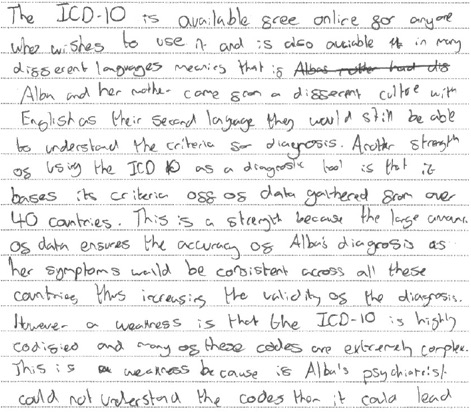 The ICD-10 is available free online for anyone
who wishes to use it and is also avaiable in many
different languages meaning that if Albas mother had dis
Alba and her mother came from a different culture with
English as their second language they would still be able
to understand the criteria for diagnosis. Another strength
of using the ICD 10 as a diagnostic tool is that it
bases its criteria off of data gathered from over
40 countries. This is a strength because the large amount
of data ensures the accuracy of Alba's diagnosis as
her symptoms would be consistent across all these
countries, thus increasing the validity of the diagnosis.
However a weakness is that the ICD-10 is highly
codified and many of these codes are extremely complex.
This is a weakness because if Alba's psychiatrist
could not understand the codes then it could lead